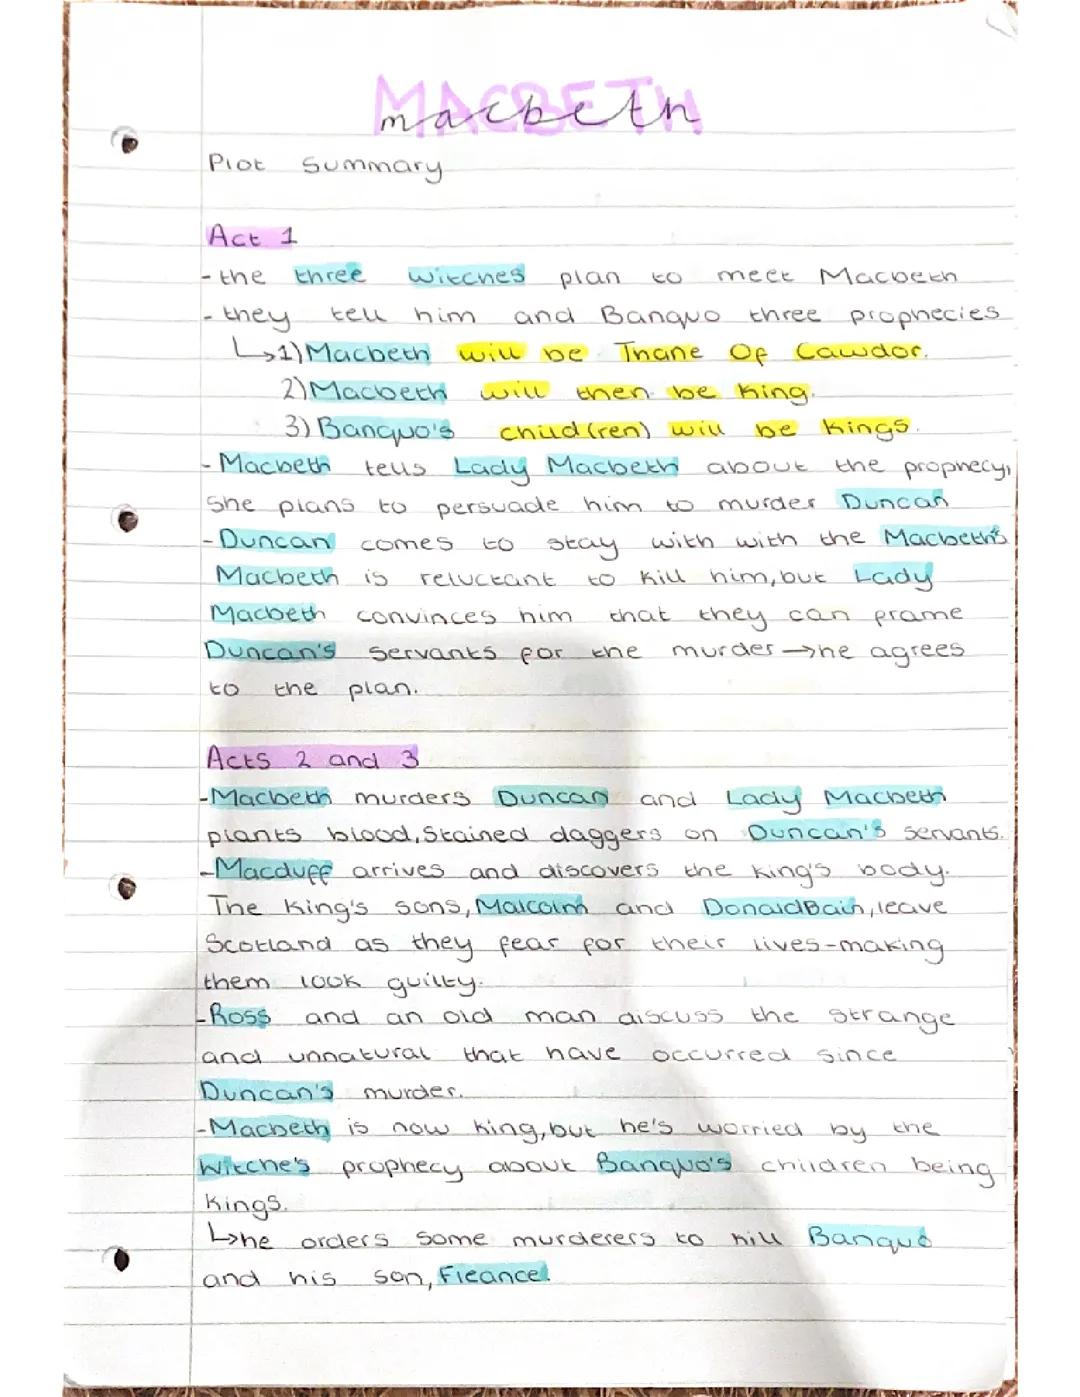 MACBETH
macbeth
Plot Summary
Act 1
- the three witches plan to meet Macbeth
- they tell him and Banquo three prophecies
↳1) Macbeth will be Thane Of Cawdor.
2) Macbeth will then be King.
3) Banquo's child(ren) will be kings.
- Macbeth tells Lady Macbeth about the prophecy,
She plans to persuade him to murder Duncan
- Duncan comes to stay with with the Macbeth's
Macbeth is reluctant to kill him, but Lady
Macbeth convinces him that they can frame
Duncan's servants for the murder → he agrees
to the plan.
Acts 2 and 3
- Macbeth murders Duncan and Lady Macbeth
plants blood, Stained daggers on Duncan's servants.
- Macduff arrives and discovers the king's body.
The King's sons, Malcolm and DonaldBain, leave
Scotland as they fear for their lives - making
them look guilty.
- Ross and an old man discuss the strange
and unnatural that have occurred since
Duncan's murder.
- Macbeth is now king, but he's worried by the
Witche's prophecy about Banquo's children being
kings.
↳ he orders some murderers to kill Banquo
and his son, Fleance.